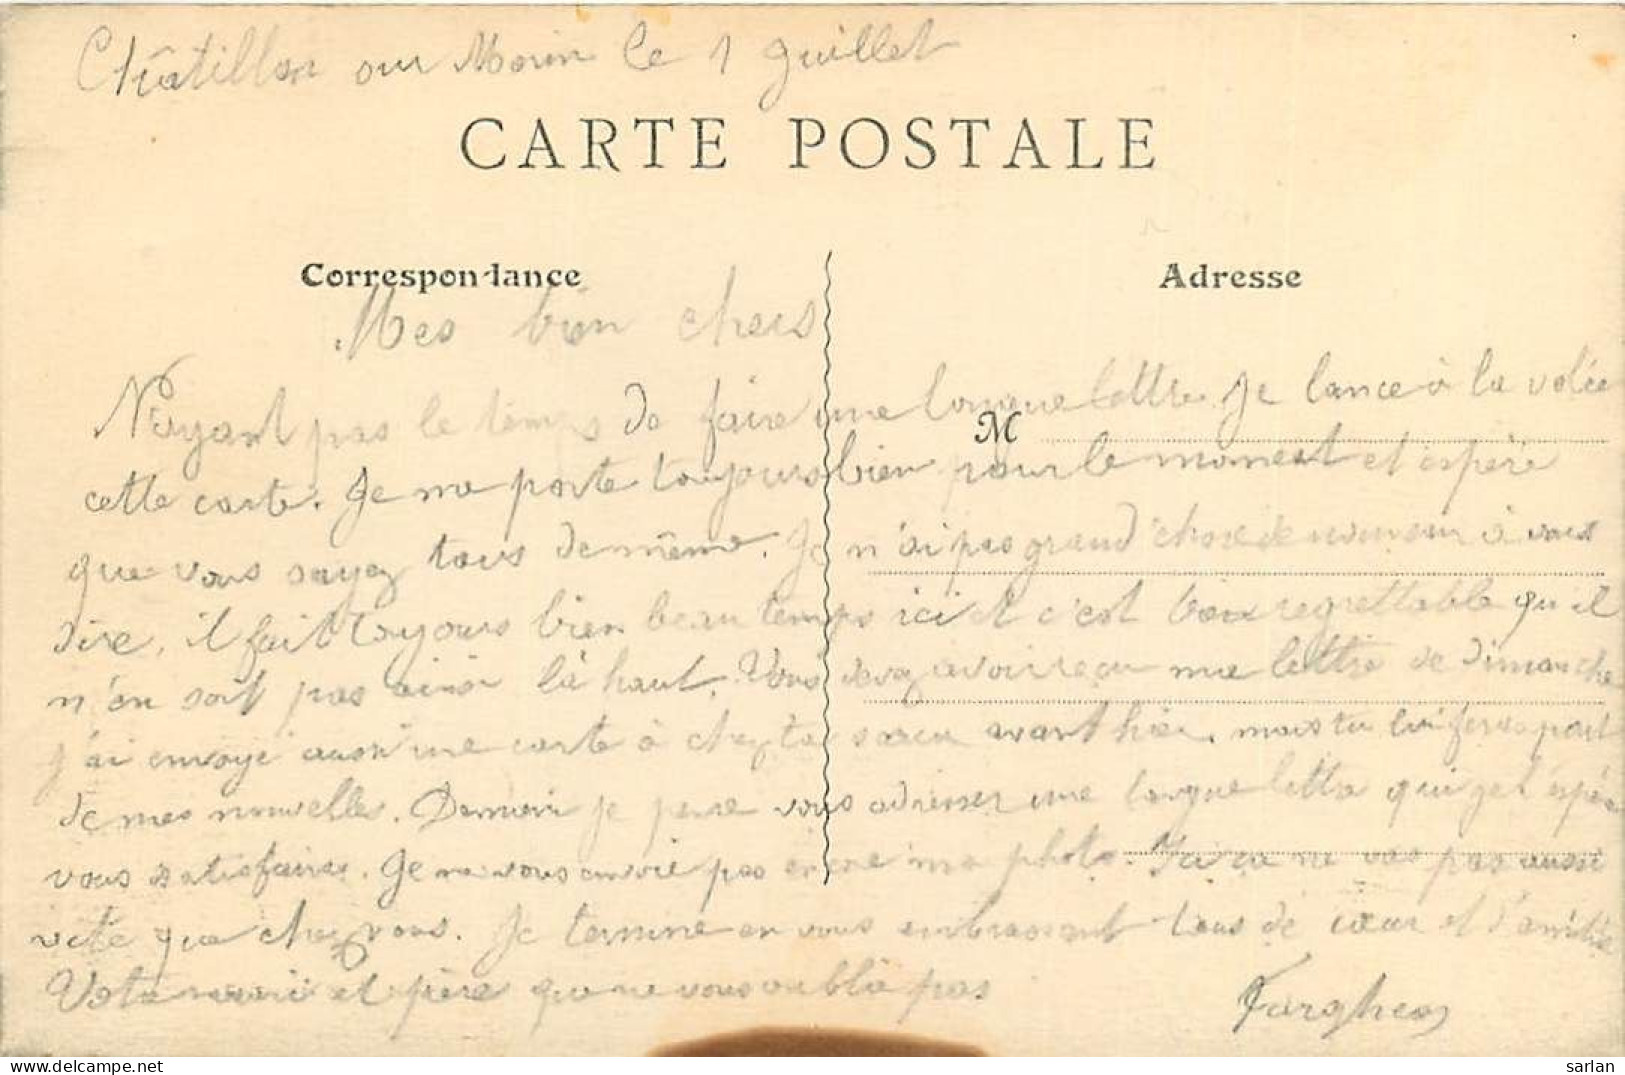 Châtillon sur Morin le 1 Juillet
CARTE POSTALE
Correspondance
Adresse
Mes bien chers
N'ayant pas le temps de faire une longue lettre je lance à la volée
M
cette carte. Je me porte toujours bien pour le moment et espère
que vous soyez tous de même. Je n'ai pas grand chose de nouveau à vous
dire, il fait toujours bien beau temps ici et c'est bien regrettable qu'il
n'en soit pas ainsi là haut. Vous devez avoir reçu ma lettre de Dimanche
j'ai envoyé aussi une carte à chez ta sœur avant hier, mais tu lui feras part
de mes nouvelles. Demain je pense vous adresser une longue lettre qui je l'espère
vous satisfaires. Je ne vous envoie pas encore ma photo. Ici ça ne vas pas aussi
vite que chez vous. Je termine en vous embrassant tous de cœur et d'amitié
Votre mari et père que ne vous oublie pas
Fargheon
sarlan